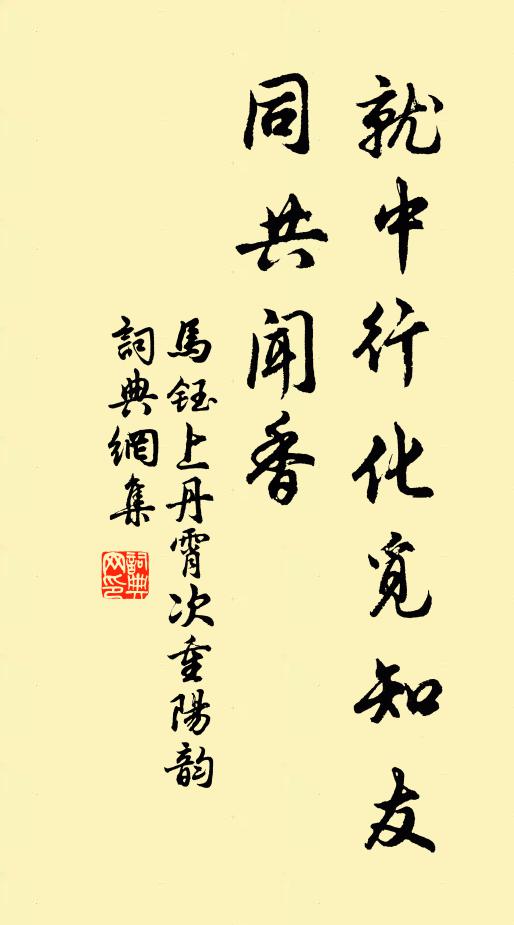 就中行化覓知友
同共聞香
馬鈺上丹霄次重陽韵
詞典網集
詞典网印